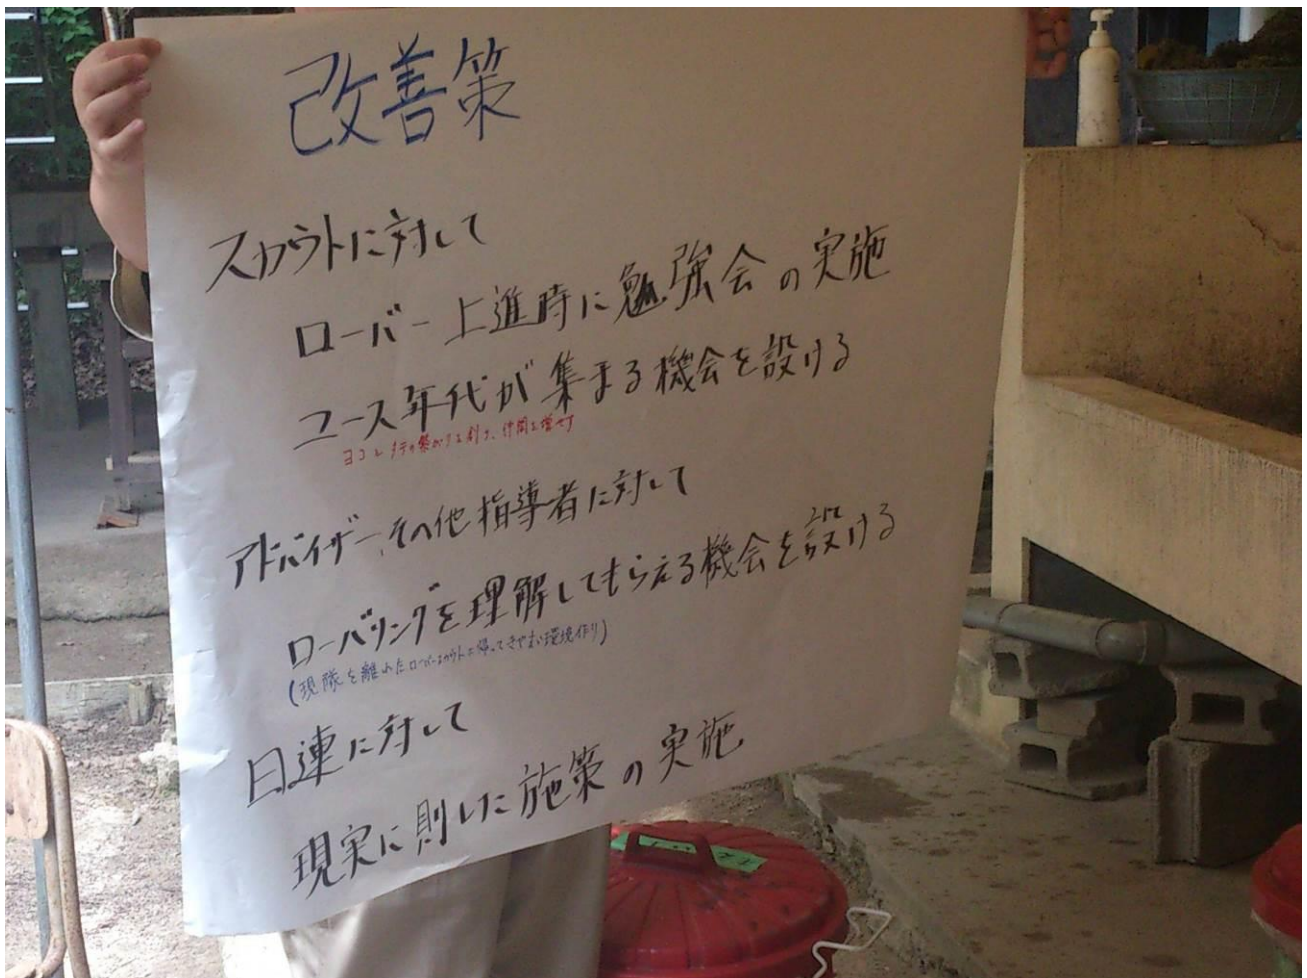 改善策
スカウトに対して
ローバー上進時に勉強会の実施
ユース年代が集まる機会を設ける
ヨコとタテの繋がりを創り、仲間を増やす
アドバイザー、その他指導者に対して
ローバリングを理解してもらえる機会を設ける
(現隊を離れたローバースカウトに帰ってきやすい環境作り)
日連に対して
現実に則した施策の実施